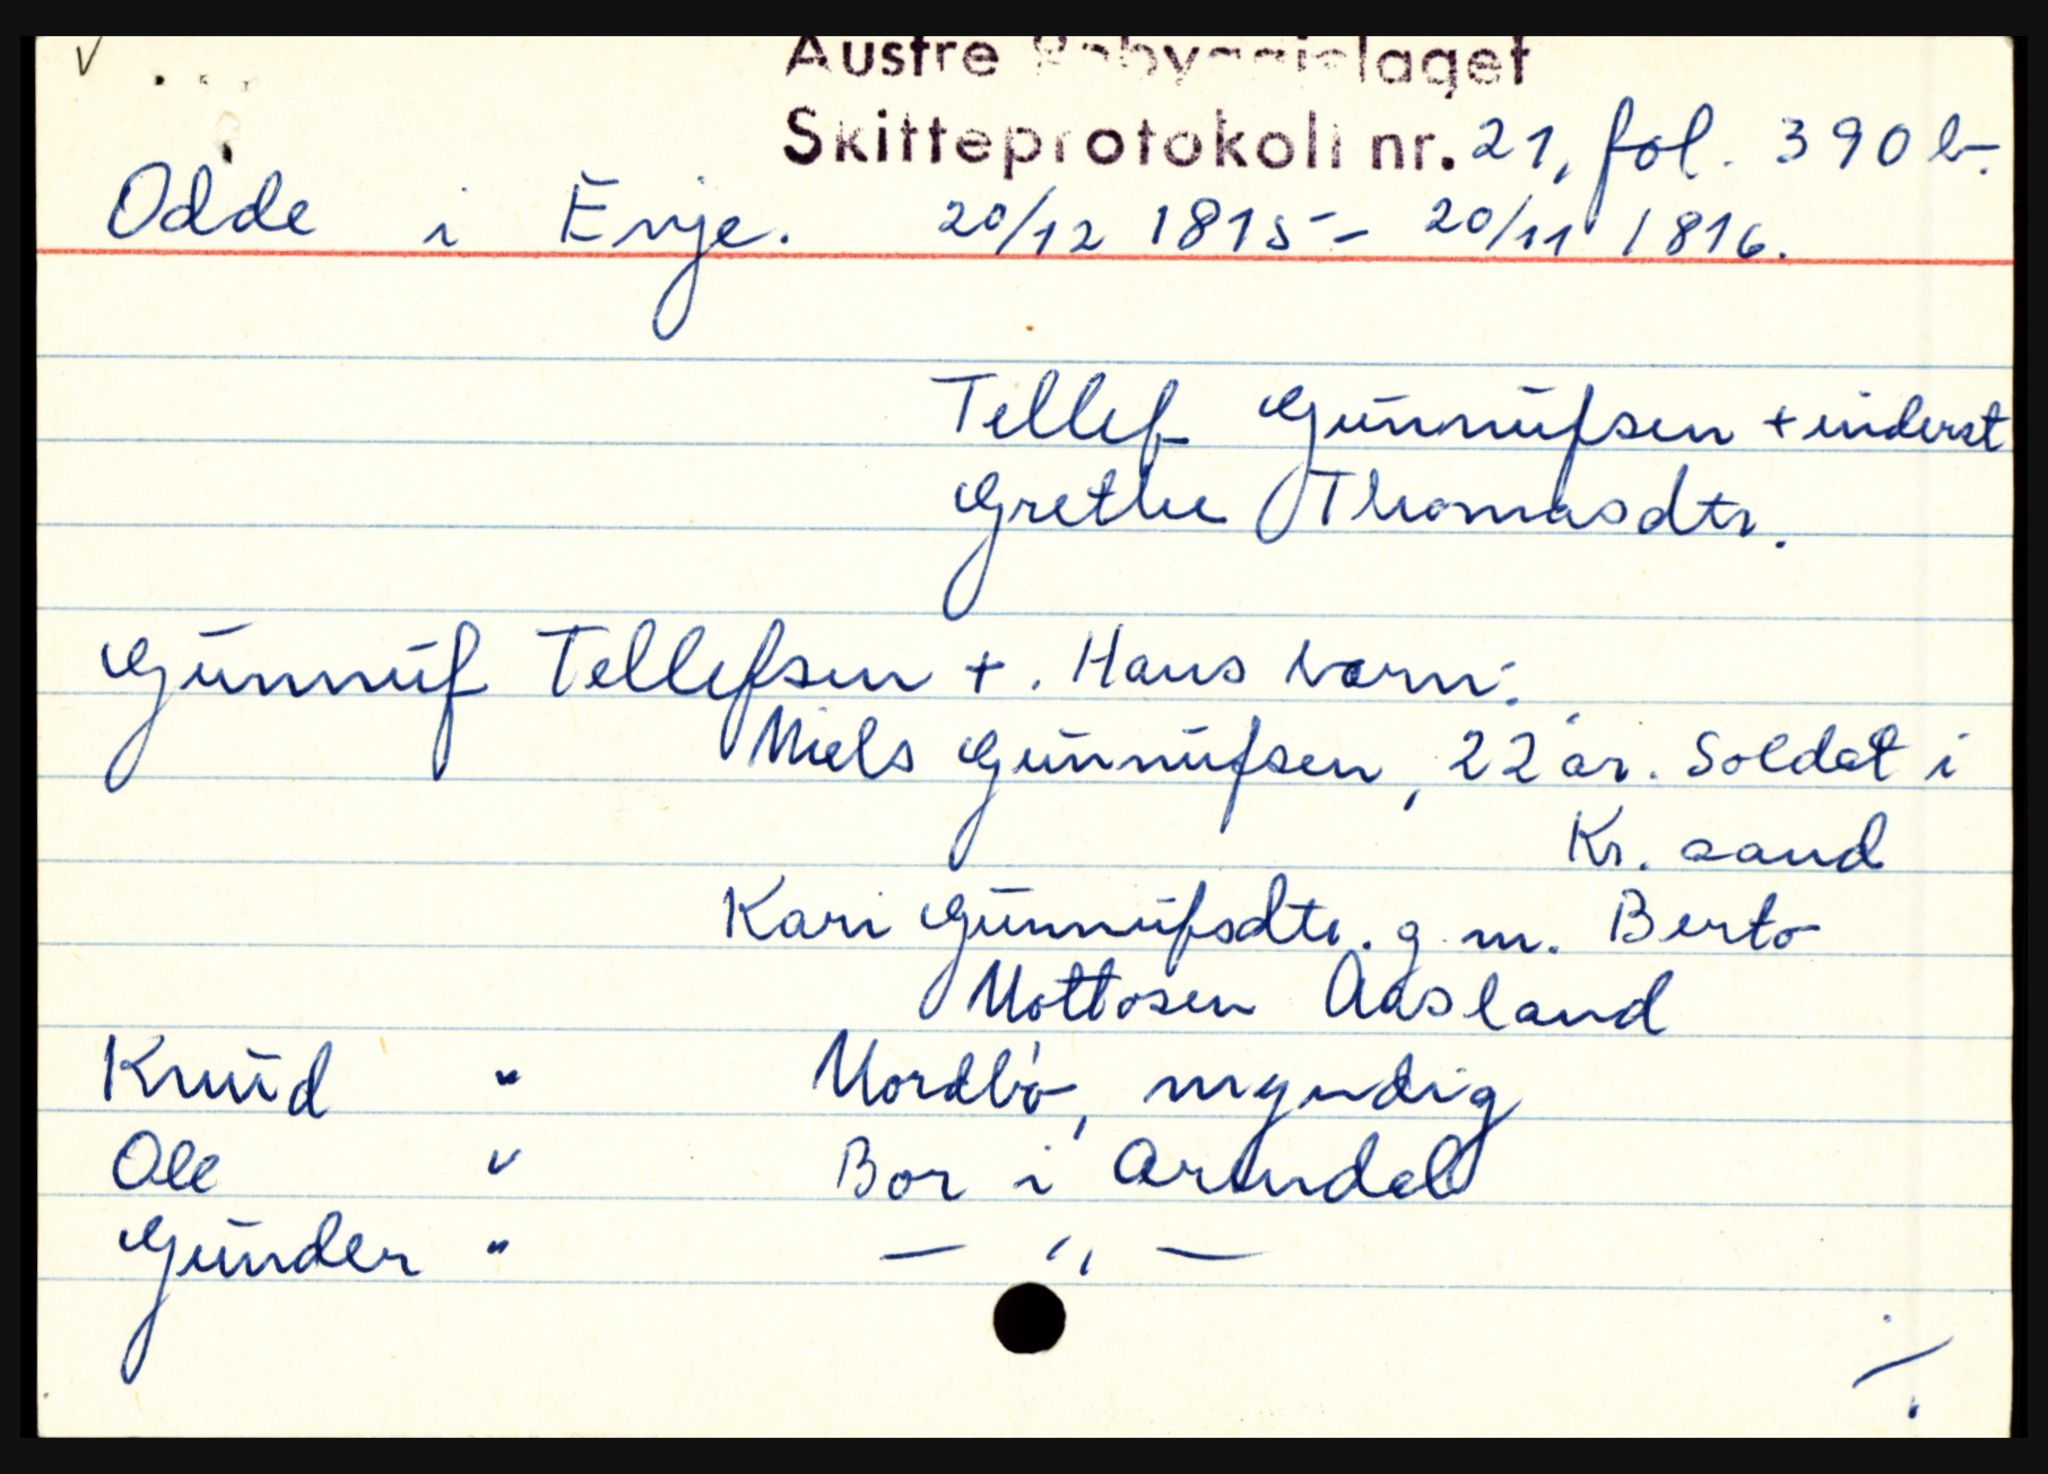 Austre Robyggjelaget
Skifteprotokoll nr. 21, fol. 390 b.
Odde i Evje. 20/12 1815 - 20/11 1816.
Tellef Gunnufsen + inderst
Grethe Thomasdtr.
Gunnuf Tellefsen +. Hans barn:
Niels Gunnufsen, 22 år. Soldat i
Kr. sand
Kari Gunnufsdtr. g. m. Berto
Nottosen Aasland
Knud " Nordbö, myndig
Ole " Bor i Arendal
Gunder " — " —
./.